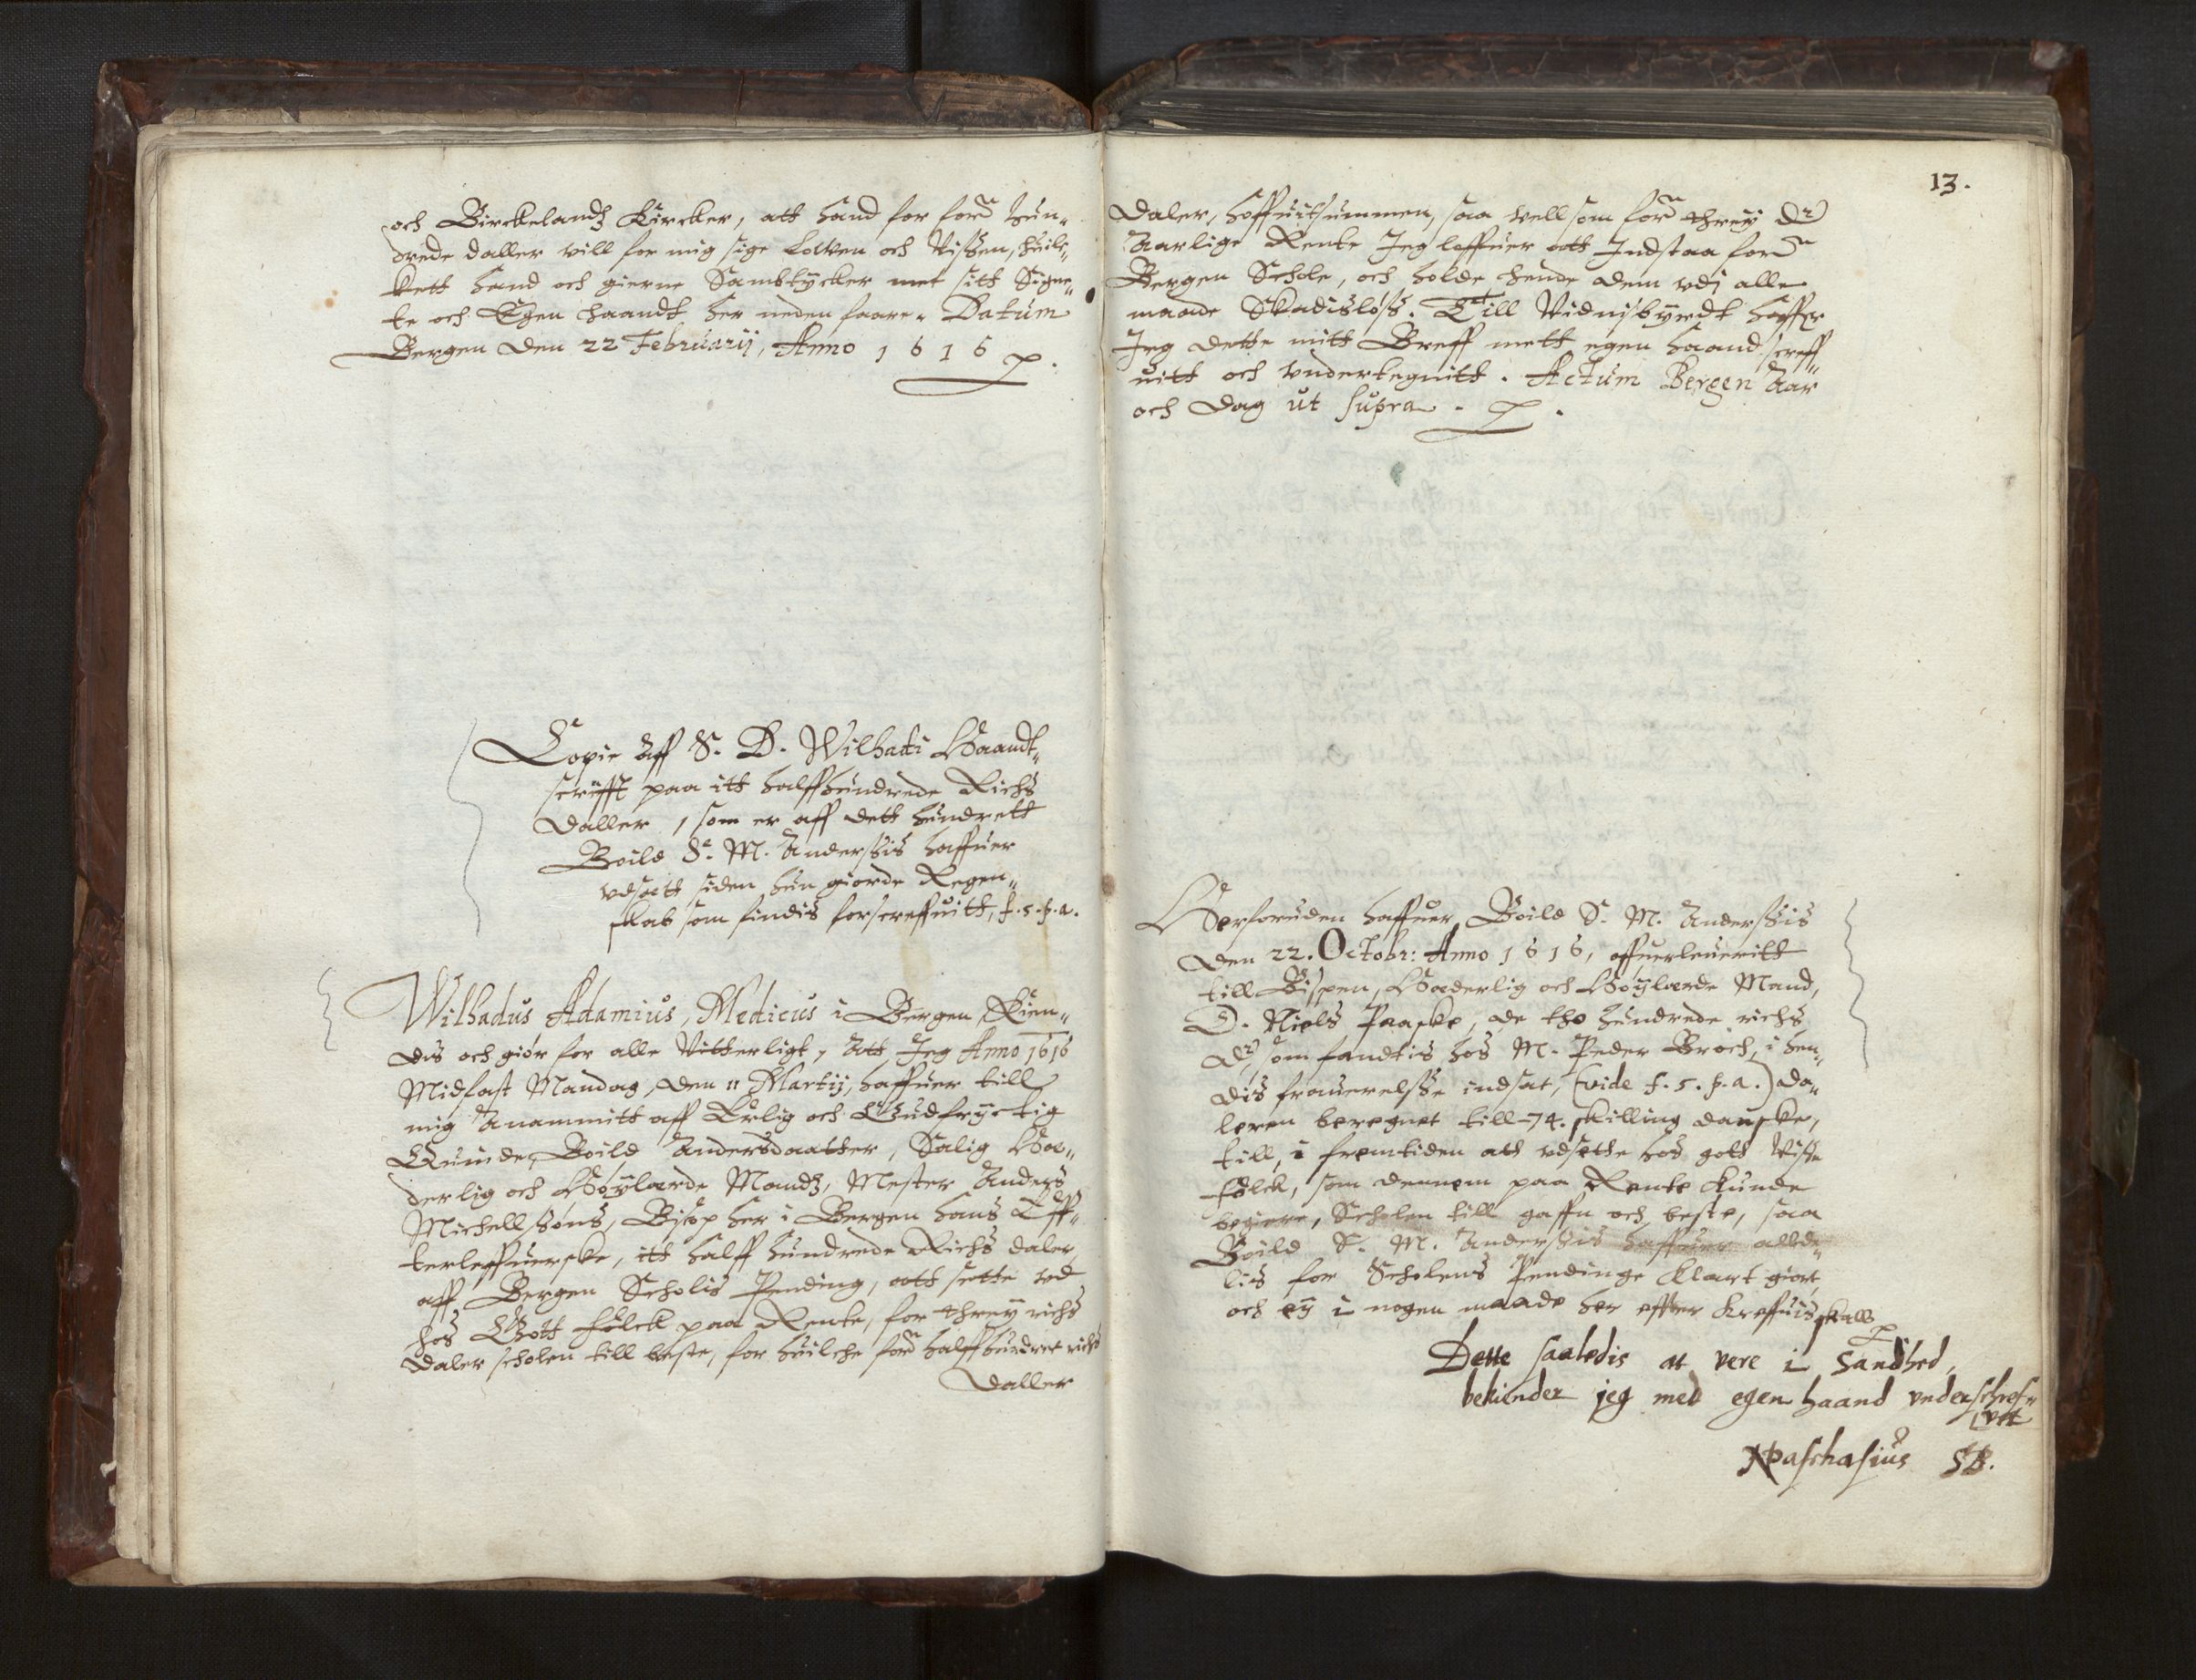 och Birckelandz Kircker, att hand for ford hun„
drede daller vill for mig sige Lowen och Vissen, huilc„
kett hand och gierne Sambtycker met sitt Signe„
te och Egen Haandt her neden faare. Datum
Bergen den 22 Februarij, Anno 1616
Copie Aff S. D. Wilhadi Haandt„
scrifft paa itt halffhundrede Richs
Daller, som er aff dett hundrett
Boild Sl. M. Anderssis haffuer
vdsatt siden hun giorde Regen„
skab som findis forscreffuitt, f. 5. p. a.
Wilhadus Adamius, Medicus i Bergen, Kien„
dis och giør for alle Vitterligt, Att Jeg Anno 1616
Midfast Mandag, den 11 Martij, haffuer till
mig Anammitt aff Erlig och Gudfryctig
Quinde, Boild Andersdaatter, Salig Hæ„
derlig och Høylærde Mandz, Mester Anders
Michellssøns, Bisop her i Bergen hans Eff„
terleffuerske, itt halff hundrede Richs daler
aff Bergen Scholis Pending, att sette vd
hos Gott Folck paa Rente, for threy richs
daler scholen till beste, for huilche ford halffhundret richs
Daller
13.
Daler, hoffuitsummen, saa vell som ford threy dr
Aarlige Rente Jeg loffuer att Indstaa ford
Bergen Schole, och holde hende dem vdj alle
maade Skadisløss. Till Vidnisbyrdt haffr
Jeg dette mitt Breff mett egen haand screff„
uitt och vndertegnitt. Actum Bergen Aar
och Dag ut supra.
Herforuden haffuer Boild S. M. Anderssis
den 22. Octobr: Anno 1616, offuerleueritt
till Bispen, Hæderlig och Høylærde Mand,
D. Niels Paaske, de tho hundrede richs
dr, som fandtis hos M. Peder Broch, i hen„
dis frauerelsse indsat, (vide f. 5. p. a.) da„
leren beregnet till 74. skilling danske,
till, i fremtiden att vdsette hos gott Visse
folck, som dennem paa Rente kunde
begiere, Scholen till gaffn och beste, saa
Boild S. M. Anderssis haffuer alde„
lis for Scholens Pendinge klart giort,
och ey i nogen maade her efter kreffuis skall
Dette saaledis at vere i Sandhed,
bekiender jeg med egen haand vnderschref„
vit
NPaschasius SB.